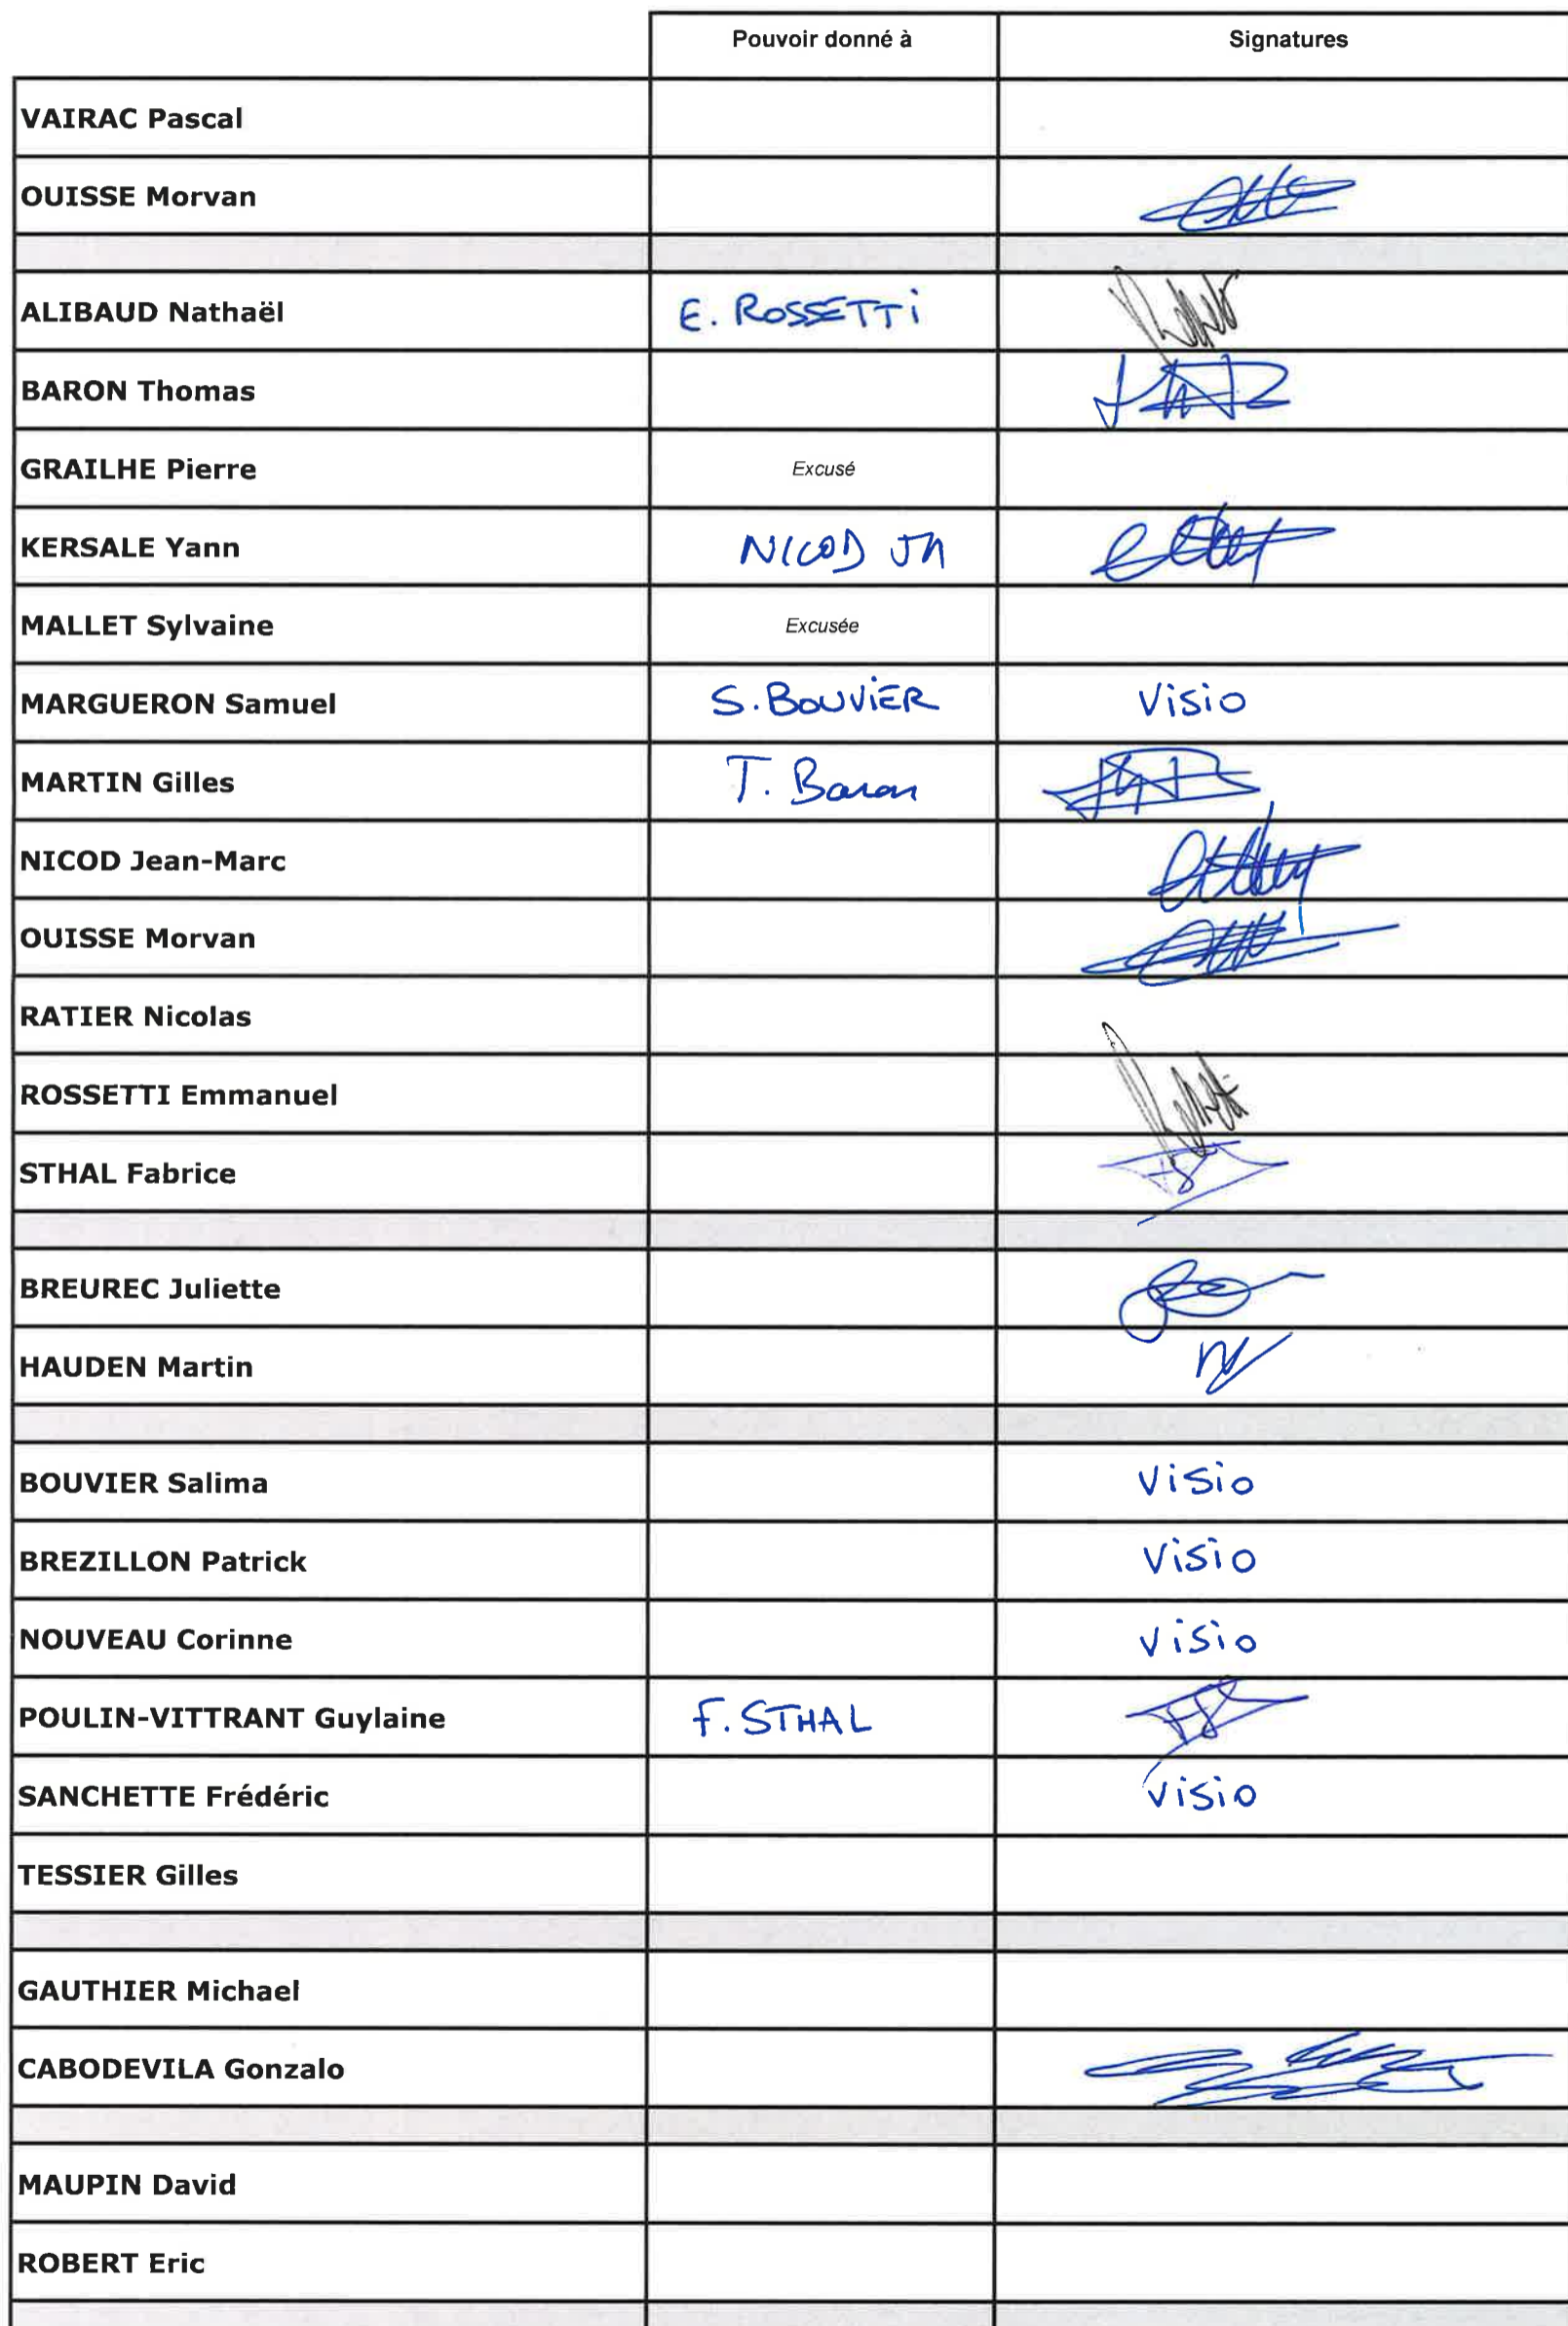 Pouvoir donné à Signatures
VAIRAC Pascal
OUISSE Morvan
ALIBAUD Nathaël E. ROSSETTi
BARON Thomas
GRAILHE Pierre Excusé
KERSALE Yann NICOD JM
MALLET Sylvaine Excusée
MARGUERON Samuel S. BOUViER Visio
MARTIN Gilles T. Baron
NICOD Jean-Marc
OUISSE Morvan
RATIER Nicolas
ROSSETTI Emmanuel
STHAL Fabrice
BREUREC Juliette
HAUDEN Martin
BOUVIER Salima Visio
BREZILLON Patrick Visio
NOUVEAU Corinne Visio
POULIN-VITTRANT Guylaine F. STHAL
SANCHETTE Frédéric Visio
TESSIER Gilles
GAUTHIER Michael
CABODEVILA Gonzalo
MAUPIN David
ROBERT Eric